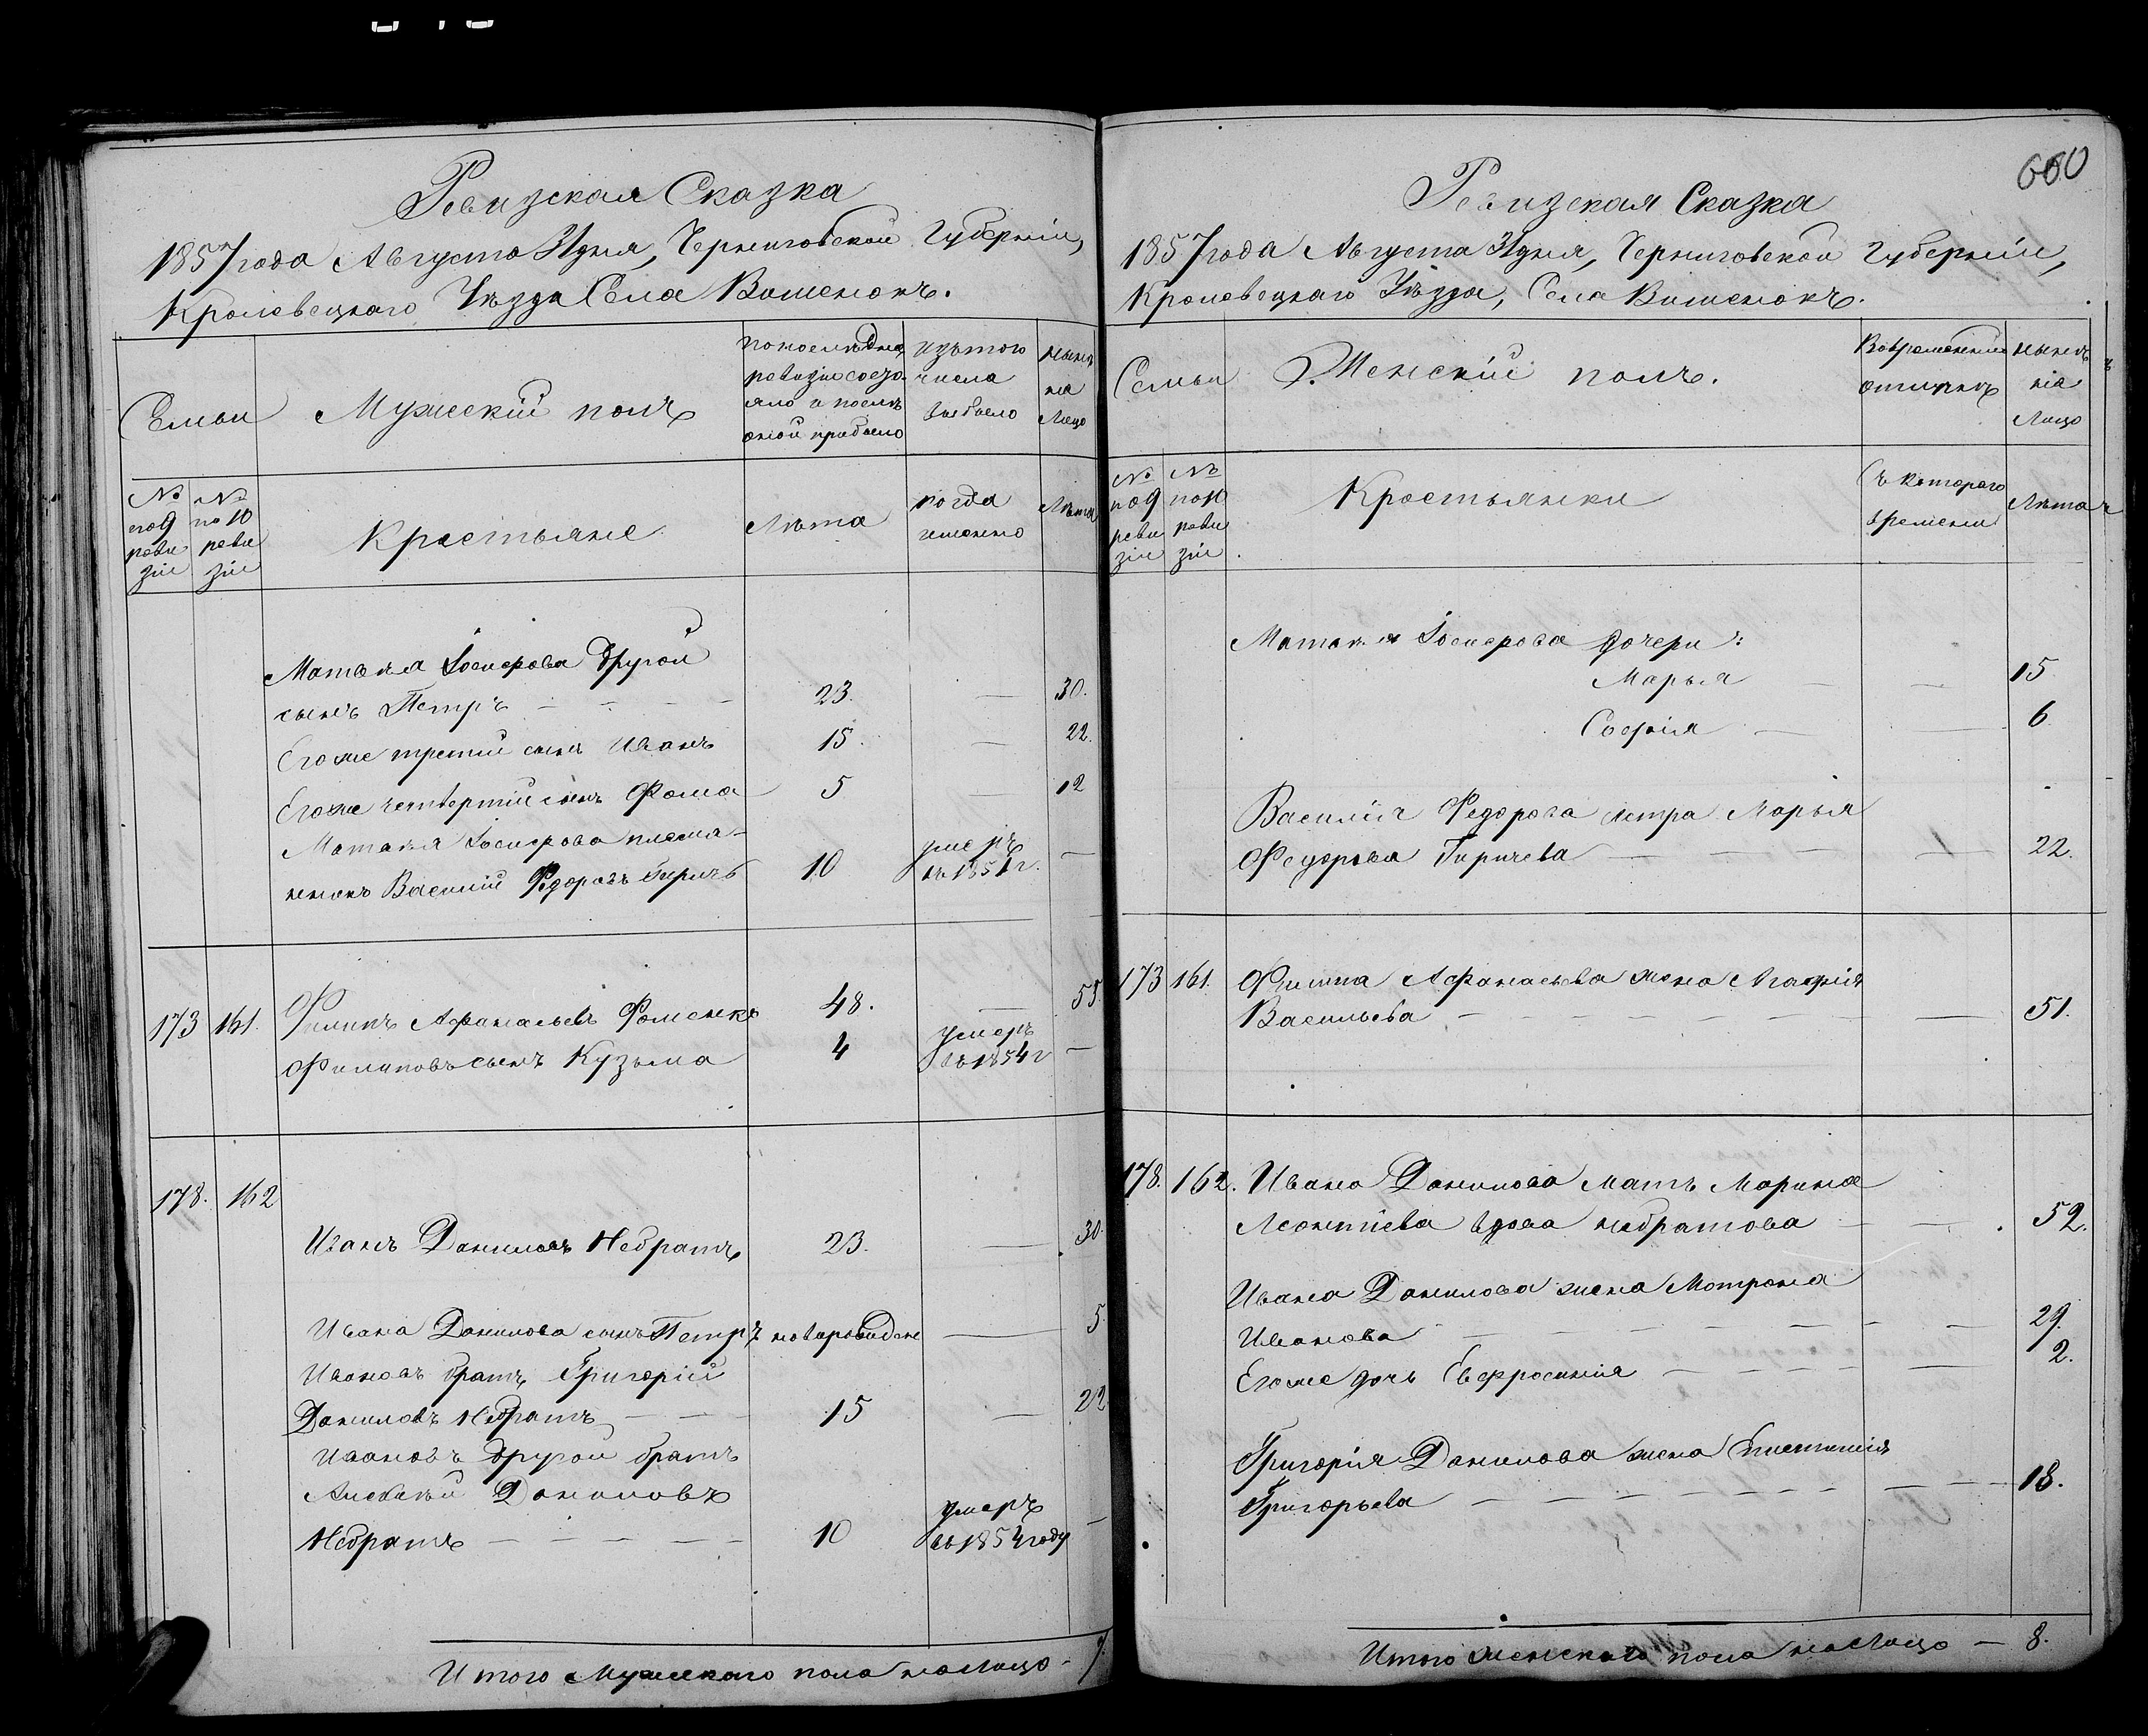 Ревизская Сказка
1857 года Августа 31 дня, Черниговской Губернии,
Кролевецкаго Уѣзда Села Вишенокъ.
Семьи
Мужескій полъ
по последней
ревизіи состо-
яло и послѣ
оной прибыло
изъ того
числа
выбыло
нынѣ
на
лицо
№
по 9
реви
зіи
№
по 10
реви
зіи
Крестьяне
Лѣта
когда
именно
Лѣта
Матвѣя Іосифова другой
сынъ Петръ — 23. — 30.
Егоже третій сынъ Иванъ 15. — 22.
Егоже четвертій сынъ Фома 5 — 12
Матвѣя Іосифова племя-
никъ Василій Федоровъ Гиричъ 10 умеръ
въ 1851 г. —
173 161. Филипъ Афанасьевъ Фоменко 48. — 55.
Филиповъ сынъ Кузьма 4 умеръ
въ 1854 г —
178. 162
Иванъ Даниловъ Небратъ 23. — 30.
Ивана Данилова сынъ Петръ новорожден — 5.
Ивановъ братъ Григорій
Даниловъ Небратъ — 15 — 22
Ивановъ другой братъ
Алексѣй Даниловъ
Небратъ — 10 умеръ
въ 1854 году —
Итого Мужескаго пола налицо - 7.
660
Ревизская Сказка
1857 года Августа 31 дня, Черниговской Губерніи,
Кролевецкаго Уѣзда, Села Вишенокъ.
Семьи
Женскій полъ.
Во временной
отлучкѣ
нынѣ
на
Лицо
№
по 9
реви
зіи
№
по 10
реви
зіи.
Крестьянки
Съ котораго
времени
Лѣта
Матвѣя Іосифова дочери:
Марья — — 15
Софія — — 6
Василія Федорова сестра Марья
Федорова Гиричева — — 22.
173 161. Филипа Афанасьева жена Агафія
Васильева — — 51.
178. 162. Ивана Данилова мать Марина
Леонтіева вдова Небратова — — 52.
Ивана Данилова жена Мотрона
Иванова — — 29.
Егоже дочь Евфросинія — — 2.
Григорія Данилова жена
Григорьева — — 18.
Итого женскаго пола налицо — 8.